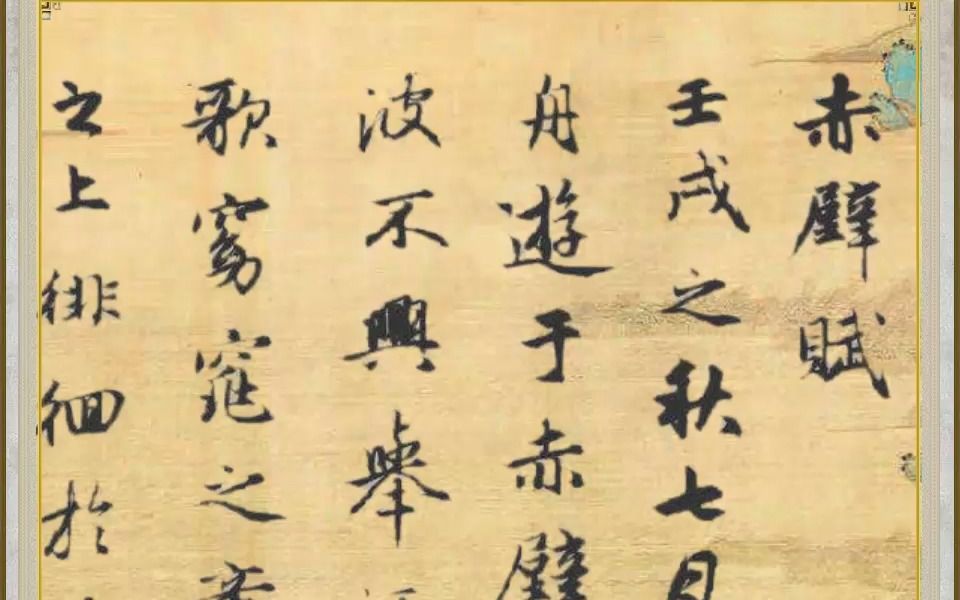 赤壁賦
壬戌之秋七月
舟遊于赤壁
波不興舉
歌窈窕之章
之上徘徊於